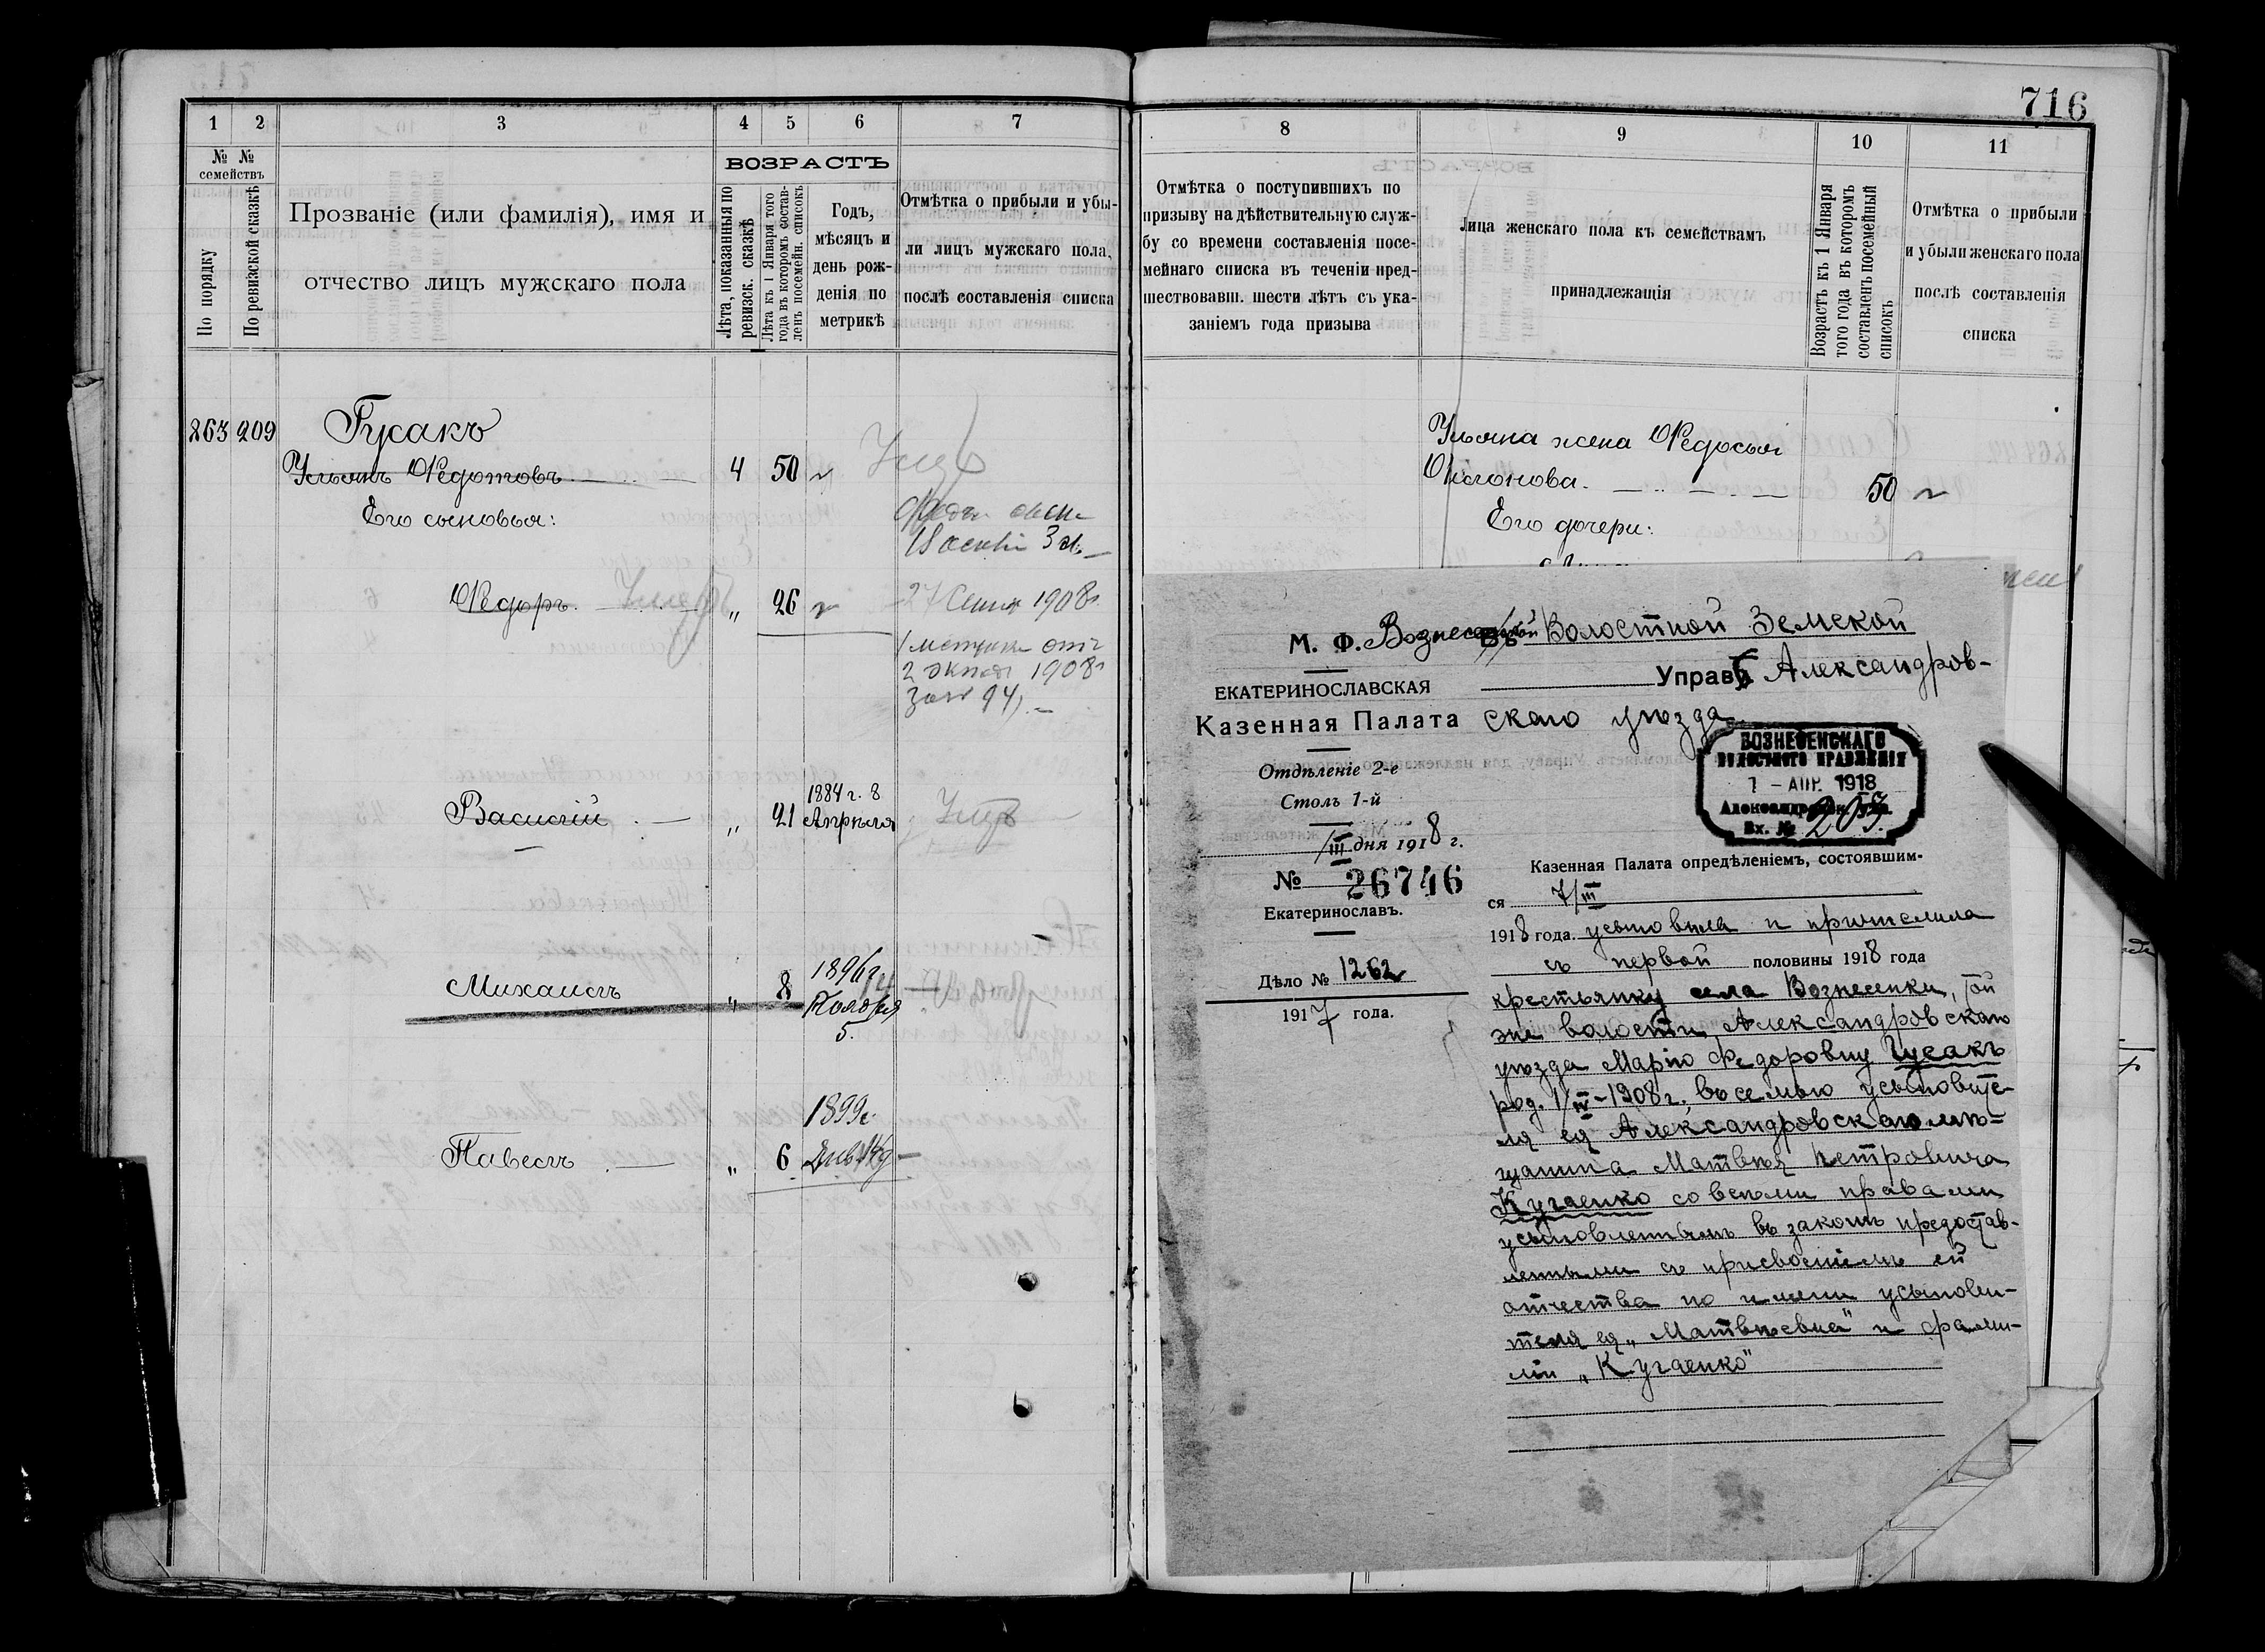 716
1 2 3 4 5 6 7
№ № семействъ
По порядку
По ревизской сказкѣ
Прозваніе (или фамилія), имя и
отчество лицъ мужскаго пола
ВОЗРАСТЪ
Лѣта, показанныя по
ревизск. сказкѣ
Лѣта къ 1 Января того
года въ которомъ состав-
ленъ посемейн. списокъ
Годъ,
мѣсяцъ и
день рож-
денія по
метрикѣ
Отмѣтка о прибыли и убы-
ли лицъ мужскаго пола,
послѣ составленія списка
263 209 Гусакъ
Ульянъ Федотовъ 4 50
Его сыновья:
Федоръ. „ 26
27 1908
отъ
2 1908
Василій „ 21 1884 г. 8
Апрѣля
Михаилъ „ 8 1896 г.
Ноября
5.
Павелъ „ 6 1899 г.
8 9 10 11
Отмѣтка о поступившихъ по
призыву на дѣйствительную служ-
бу со времени составленія посе-
мейнаго списка въ теченіи пред-
шествовавш. шести лѣтъ съ ука-
заніемъ года призыва
Лица женскаго пола къ семействамъ
принадлежащія
Возрастъ къ 1 Января
того года въ которомъ
составленъ посемейный
списокъ
Отмѣтка о прибыли
и убыли женскаго пола
послѣ составленія
списка
Ульяна жена Федосья
50
Его дочери:
М. Ф.
ЕКАТЕРИНОСЛАВСКАЯ
Казенная Палата
Отдѣленіе 2-е
Столъ 1-й
/III дня 1918 г.
№ 26746
Екатеринославъ.
Дѣло № 1262
1917 года.
Въ Вознесенской Волостной Земской
Управѣ Александров-
скаго уѣзда.
ВОЗНЕСЕНСКАГО
ВОЛОСТНОГО ПРАВЛЕНІЯ
1 - АПР. 1918
Вх. №
Казенная Палата опредѣленіемъ, состоявшим-
ся 7/III
1918 года. усыновила и причислила
съ первой половины 1918 года
крестьянку села Вознесенки, той
же волости Александровскаго
уѣзда Марію Федоровну Гусакъ
род. 1/IV-1908 г., въ семью усыновите-
ля ея Александровскаго мѣ-
щанина Матвѣя Петровича
Кугаенко со всѣми правами
усыновленнымъ въ законѣ предостав-
ленными съ присвоеніемъ ей
отчества по имени усынови-
теля ея „Матвѣевна" и фами-
ліи „Кугаенко"